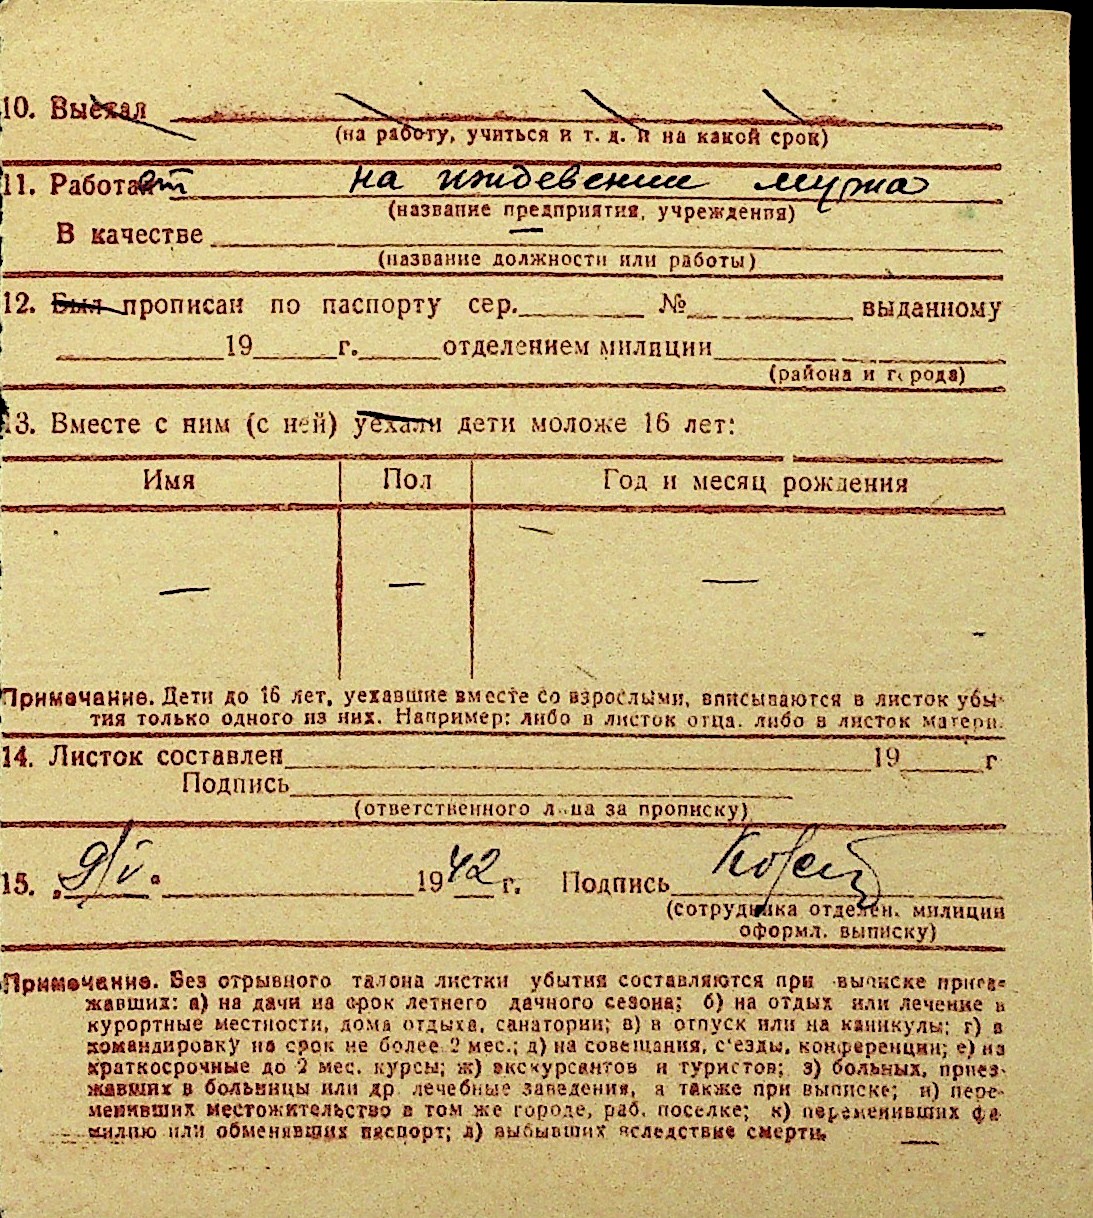 10. Выехал
(на работу, учиться и т. д. и на какой срок)
11. Работает на иждевении мужа
(название предприятия, учреждения)
В качестве
(название должности или работы)
12. Был прописан по паспорту сер. № выданному
19 г. отделением милиции
(района и города)
13. Вместе с ним (с ней) уехали дети моложе 16 лет:
Имя Пол Год и месяц рождения
— — —
Примечание. Дети до 16 лет, уехавшие вместе со взрослыми, вписываются в листок убы-
тия только одного из них. Например: либо в листок отца. либо в листок матери.
14. Листок составлен 19 г
Подпись
(ответственного лица за прописку)
15. „9/V“ 1942 г. Подпись
(сотрудника отделен. милиции
оформл. выписку)
Примечание. Без отрывного талона листки убытия составляются при выписке приез-
жавших: а) на дачи на срок летнего дачного сезона; б) на отдых или лечение в
курортные местности, дома отдыха, санатории; в) в отпуск или на каникулы; г) в
командировку на срок не более 2 мес.; д) на совещания, с'езды, конференции; е) на
краткосрочные до 2 мес. курсы; ж) экскурсантов и туристов; з) больных, приез-
жавших в больницы или др лечебные заведения, а также при выписке; и) пере-
менивших местожительство в том же городе, раб. поселке; к) переменивших фа-
милию или обменявших паспорт; л) выбывших вследствие смерти.